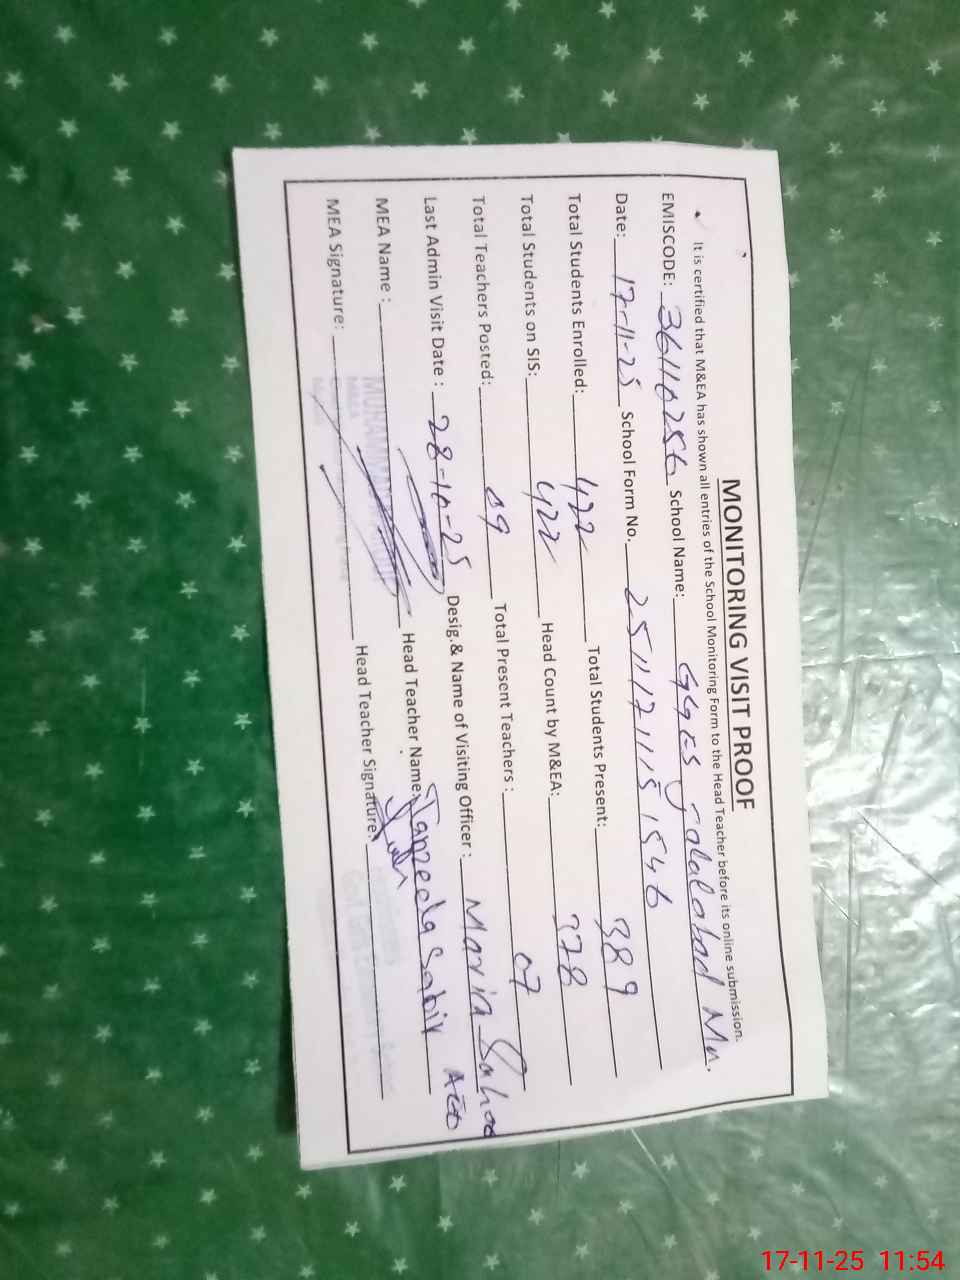 MONITORING VISIT PROOF
It is certified that M&EA has shown all entries of the School Monitoring Form to the Head Teacher before its online submission.
EMISCODE: 36110256 School Name: GGPS Jalalabad Mu.
Date: 17-11-25 School Form No. 2511171115 1546
Total Students Enrolled: 422 Total Students Present: 389
Total Students on SIS: 422 Head Count by M&EA: 378
Total Teachers Posted: 09 Total Present Teachers : 07
Last Admin Visit Date : 28-10-25 Desig.& Name of Visiting Officer : Maria AEO
MEA Name : Head Teacher Name: Tanzeela Sabir
MEA Signature: Head Teacher Signature:
17-11-25 11:54